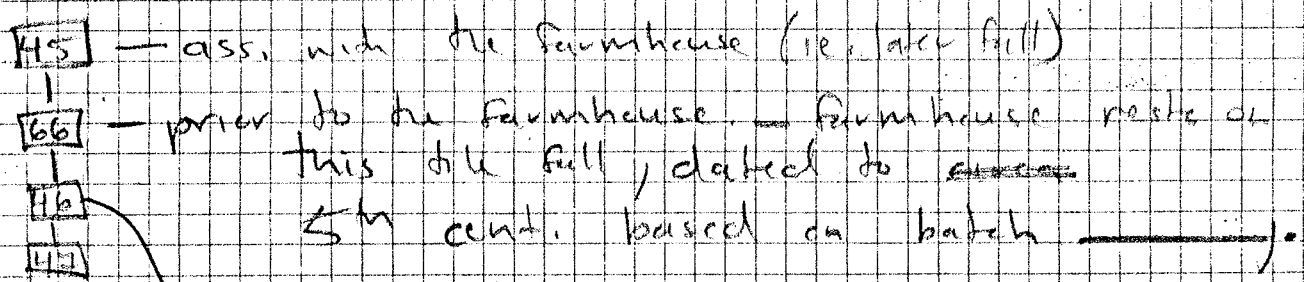 45 — ass. with the farmhouse (ie. later fill)
66 — prior to the farmhouse. — farmhouse rests on
this tile fill, dated to
46 5th cent. based on batch ______).
47